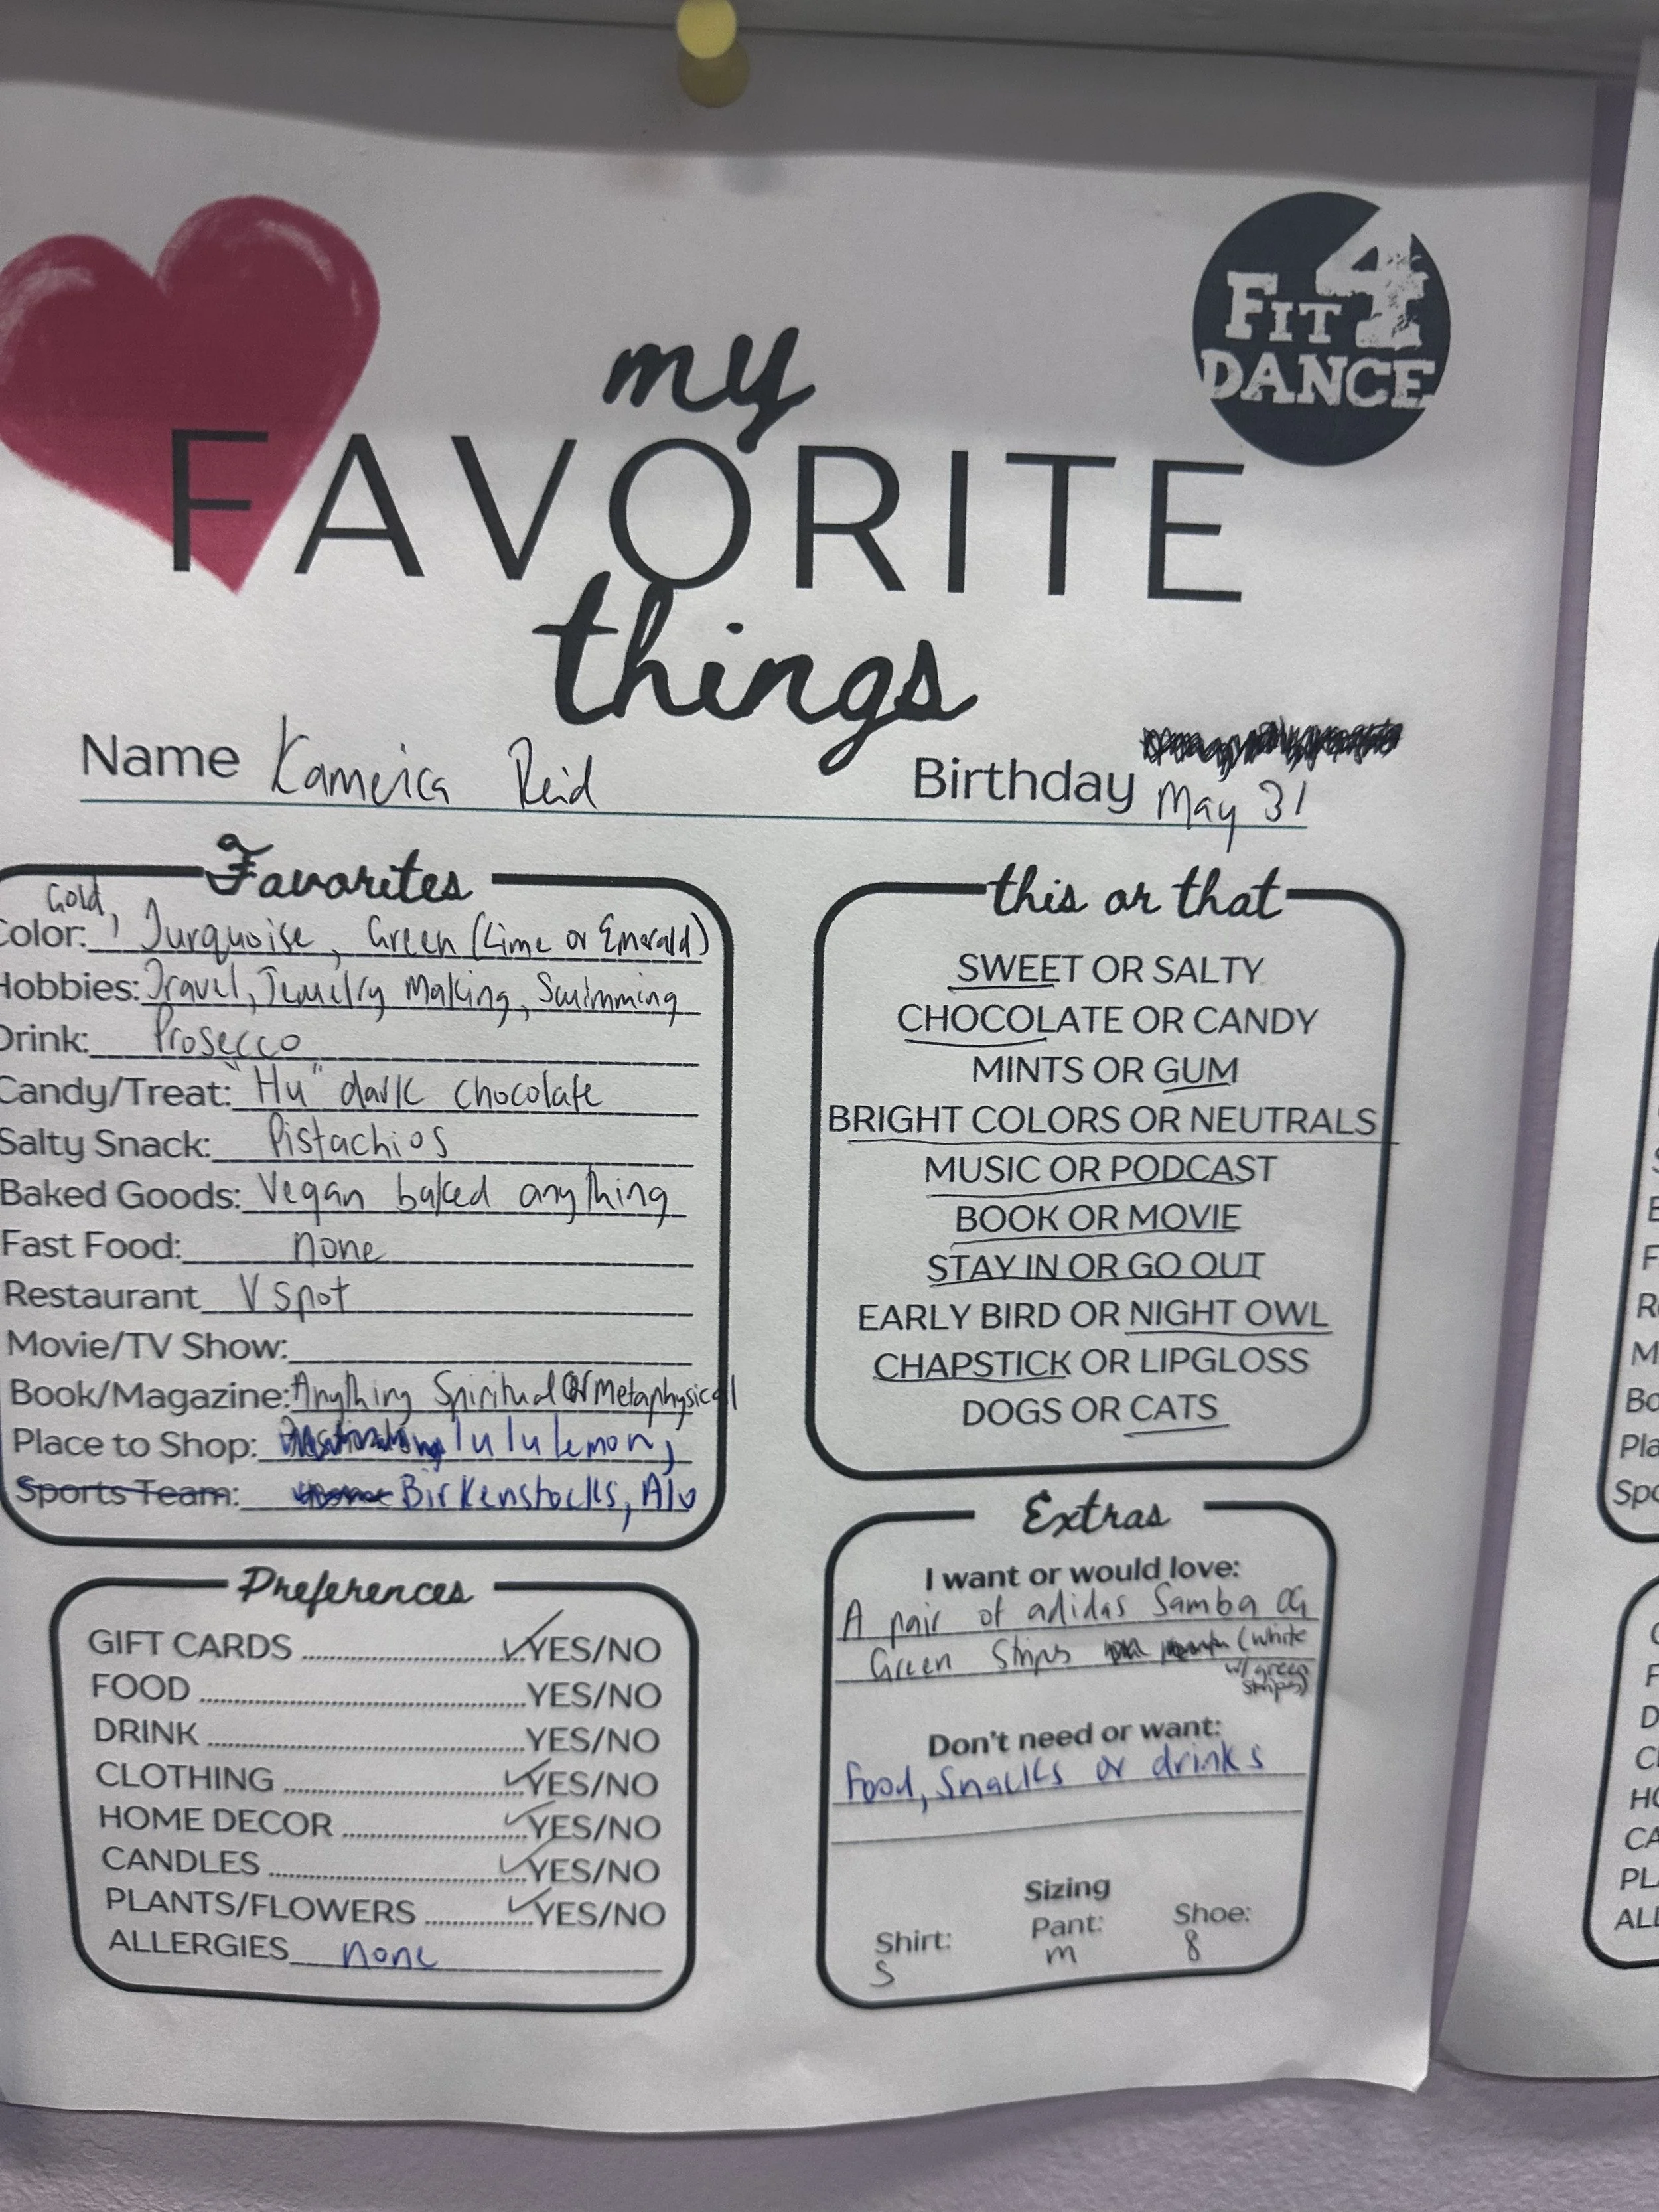 FIT 4
DANCE
my
FAVORITE
things
Name Kameica Reid
Birthday May 31
Favorites
Gold,
Color: Turquoise, Green (Lime or Emerald)
Hobbies: Travel, Jewelry Making, Swimming
Drink: Prosecco
Candy/Treat: "Hu" dark chocolate
Salty Snack: Pistachios
Baked Goods: Vegan baked anything
Fast Food: none
Restaurant V Spot
Movie/TV Show:
Book/Magazine: Anything Spiritual or Metaphysical
Place to Shop: lululemon,
Sports Team: Birkenstocks, Alo
this or that
SWEET OR SALTY
CHOCOLATE OR CANDY
MINTS OR GUM
BRIGHT COLORS OR NEUTRALS
MUSIC OR PODCAST
BOOK OR MOVIE
STAY IN OR GO OUT
EARLY BIRD OR NIGHT OWL
CHAPSTICK OR LIPGLOSS
DOGS OR CATS
Preferences
GIFT CARDS ✓YES/NO
FOOD YES/NO
DRINK YES/NO
CLOTHING ✓YES/NO
HOME DECOR ✓YES/NO
CANDLES ✓YES/NO
PLANTS/FLOWERS ✓YES/NO
ALLERGIES none
Extras
I want or would love:
A pair of adidas Samba OG
Green Strips (white
w/ green
strips)
Don't need or want:
Food, Snacks or drinks
Sizing
Shirt: Pant: Shoe:
S m 8